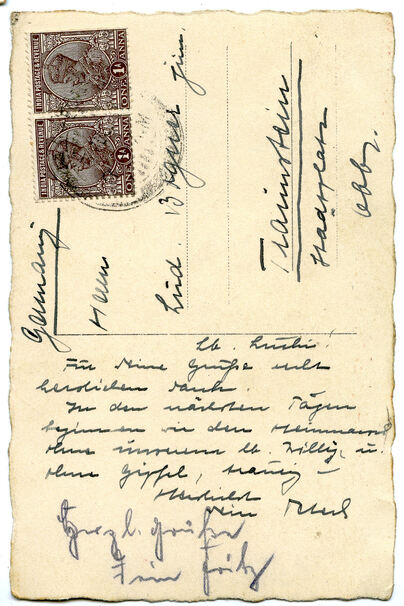 INDIA POSTAGE & REVENUE
1A
ONE ANNA
INDIA POSTAGE & REVENUE
1A
ONE ANNA
Germany
Herrn
Lud.
jun.
Traunstein
Stadtplatz
Obby.
lb. Luski!
Für Deine Grüße recht
herzlichen Dank.
In den nächsten Tagen
beginnen wir den Heimmarsch
ohne unseren lb. Willy, u.
ohne Gipfel, traurig –
Herzlichst
Dein
Herzl. Grüße
Dein Fritz